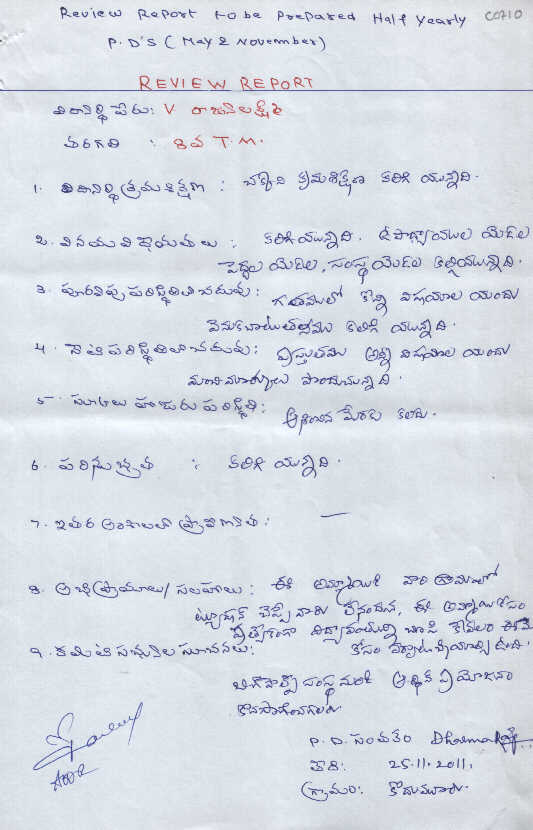 Review Report to be Prepared Half Yearly CO710
P.D'S (May & November)
REVIEW REPORT
విద్యార్థి పేరు: V రాజ్యలక్ష్మి
తరగతి : 8వ T.M.
1. విద్యార్థి క్రమశిక్షణ : చక్కని క్రమశిక్షణ కలిగి యున్నది.
2. వినయ విధేయతలు : కలిగియున్నది. ఉపాధ్యాయుల యెడల
పెద్దల యెడల, సంస్థ యెడల కల్గియున్నది.
3. పూర్వపు పరిస్థితి చదువు: గతములో కొన్ని విషయాల యందు
వెనుకబాటుతనము కలిగి యున్నది.
4. నేటి పరిస్థితి చదువు: ప్రస్తుతము అన్ని విషయాల యందు
మంచి మార్కులు పొందుచున్నది.
5. హాజరు పరిస్థితి: ఆశించిన మేరకు కలదు.
6. పరిశుభ్రత : కలిగి యున్నది.
7. ఇతర అంశాలలో ప్రావీణ్యత: —
8. అభిప్రాయాలు/సలహాలు: ఈ అమ్మాయికి వారి గ్రామంలో
ట్యూషన్ చెప్పే వారు లేనందున, ఈ అమ్మాయి కోసం
ప్రత్యేకంగా
9. కమిటి సభ్యుల సూచనలు: కోసం ఏర్పాటు చేయాల్సి ఉంది.
సంస్థ నుండి ఆర్థిక ప్రయోజనం
కొనసాగించగలరు
P.D. సంతకం
తేది: 25.11.2011.
గ్రామం: కొడుమూరు.